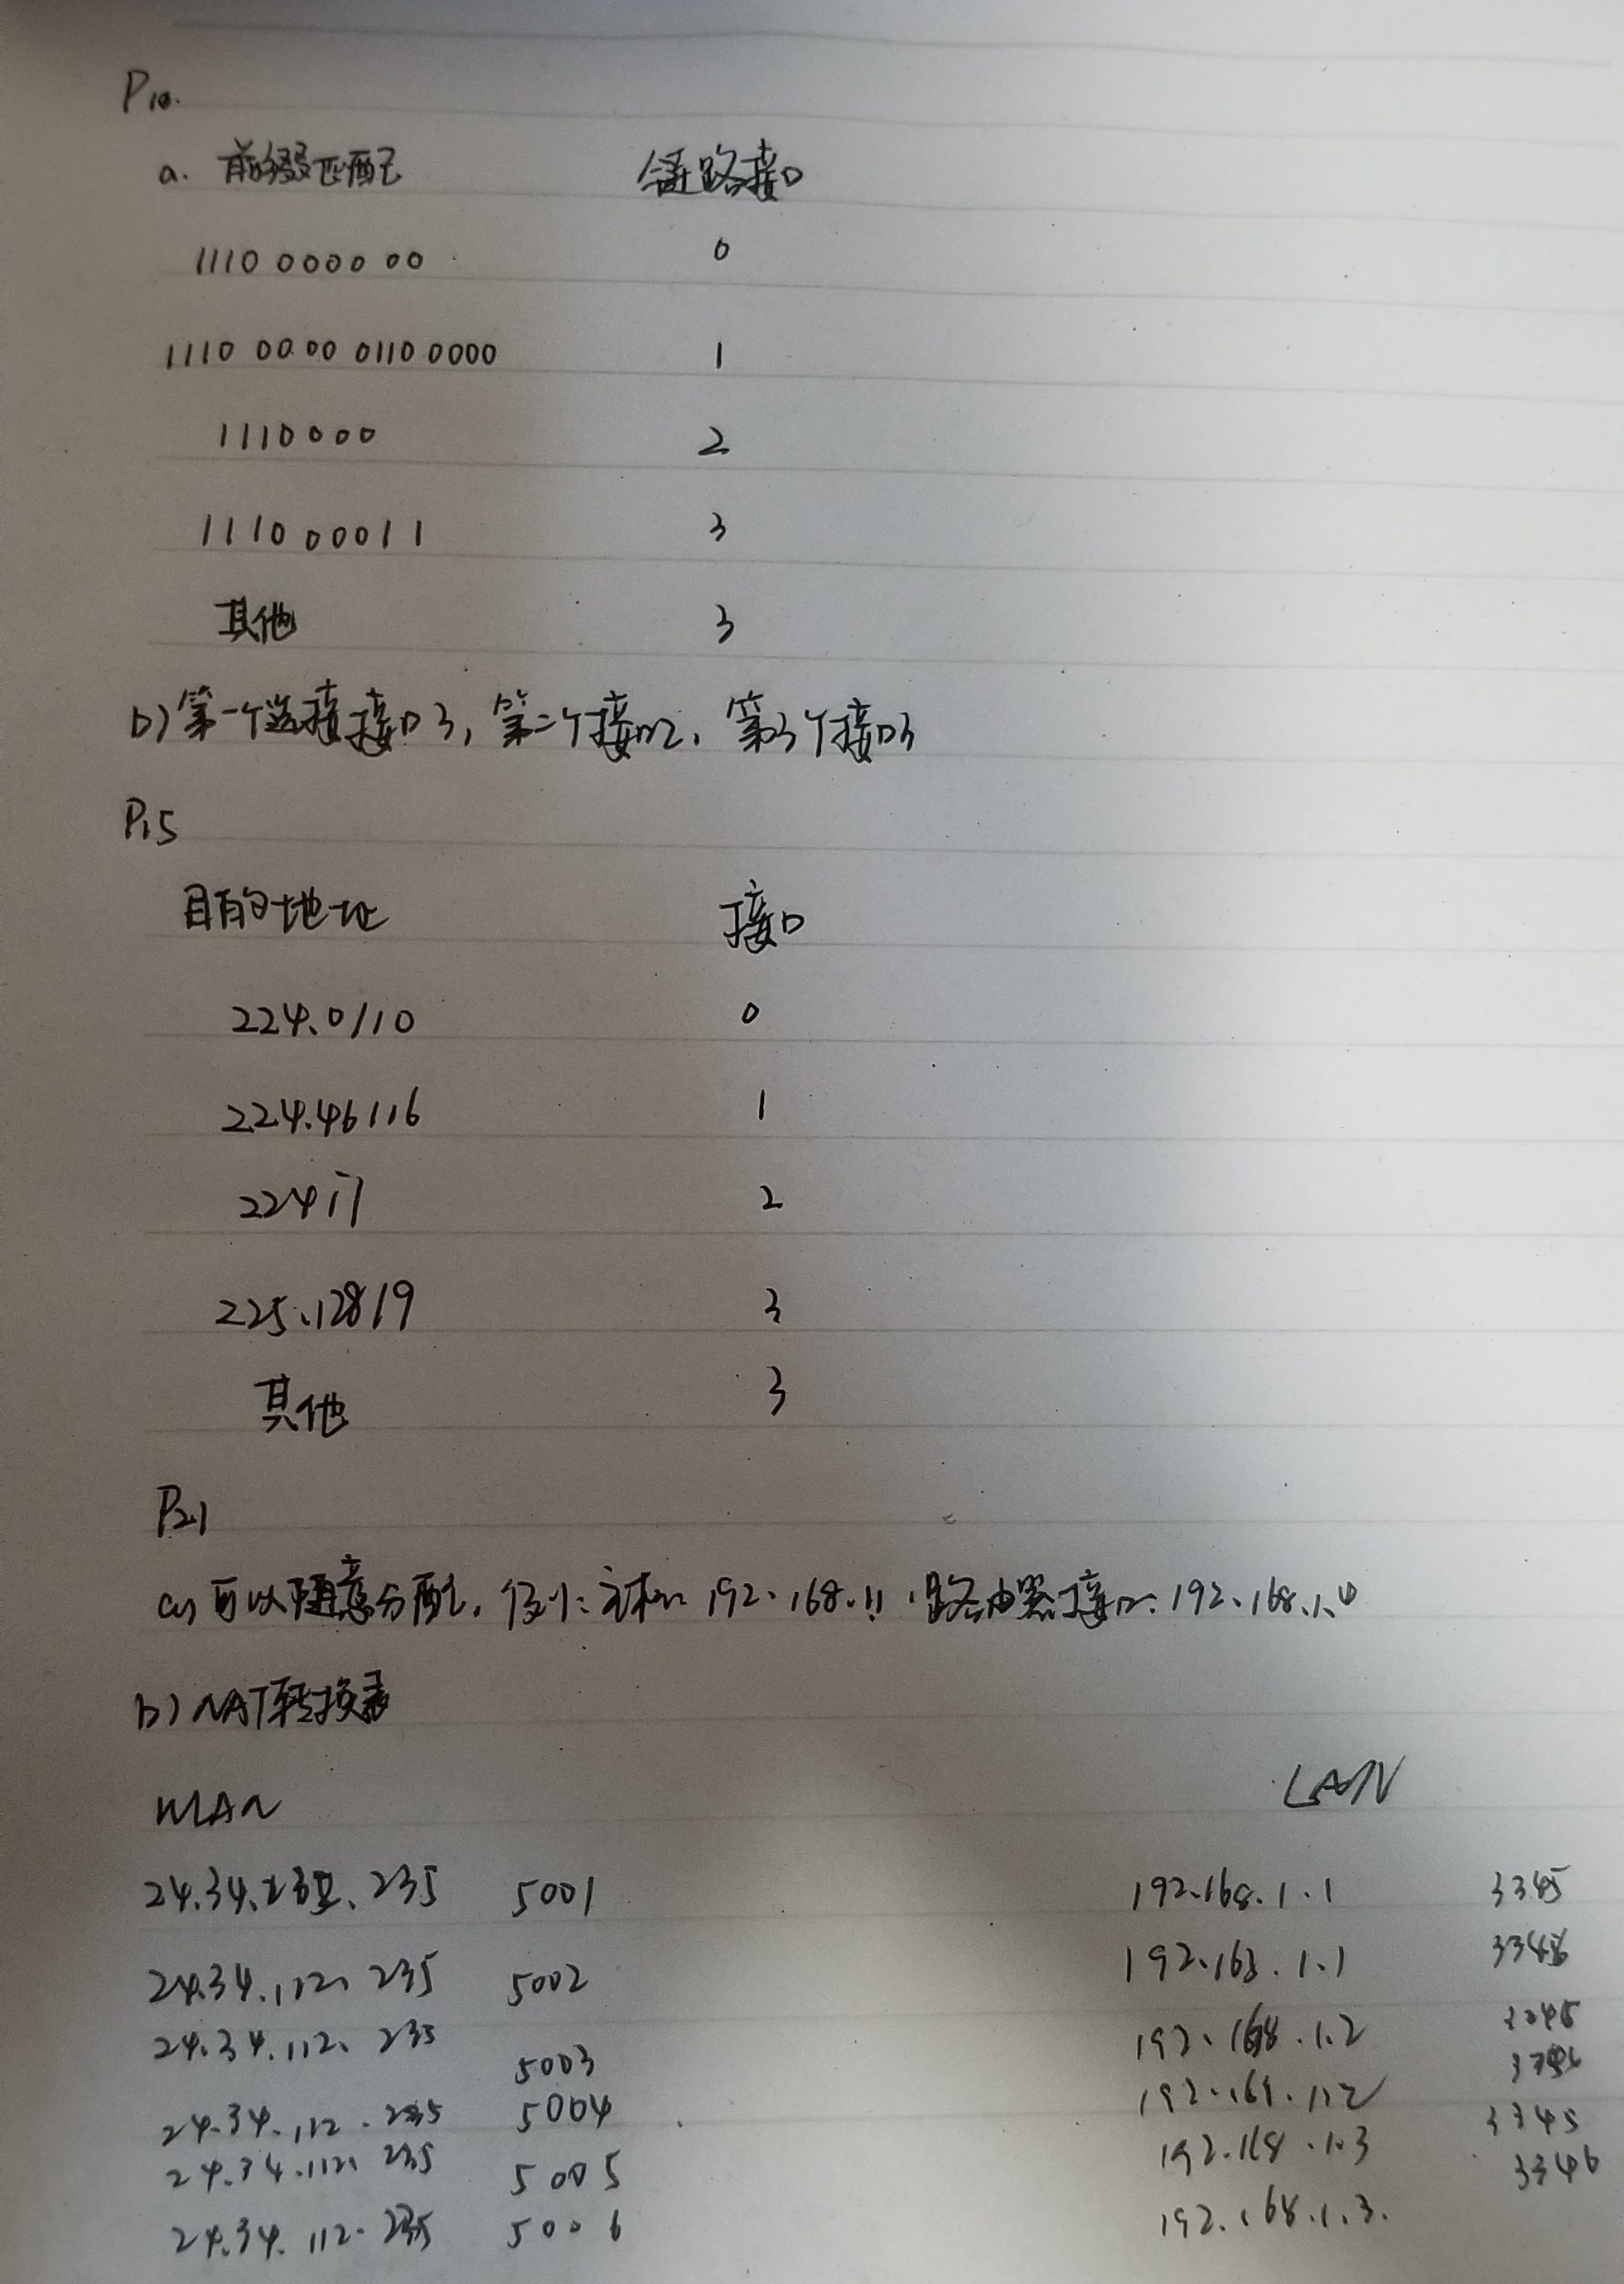 P10.
a. 前缀匹配 链路接口
1110 0000 00 0
1110 0000 0110 0000 1
1110000 2
1110 00011 3
其他 3
b) 第一个选择接口3, 第二个接口2, 第3个接口3
P15
目的地址 接口
224.0/10 0
224.46/16 1
224/7 2
225.128/9 3
其他 3
P21
a) 可以随意分配, 例: 主机: 192.168.1.1 路由器接口: 192.168.1.4
b) NAT转换表
WAN LAN
24.34. .235 5001 192.168.1.1 3345
24.34.112.235 5002 192.168.1.1 3346
24.34.112.235 5003 192.168.1.2 3345
24.34.112.235 5004 192.168.1.2
24.34.112.235 5005 192.168.1.3 3345
24.34.112.235 5006 192.168.1.3. 3346